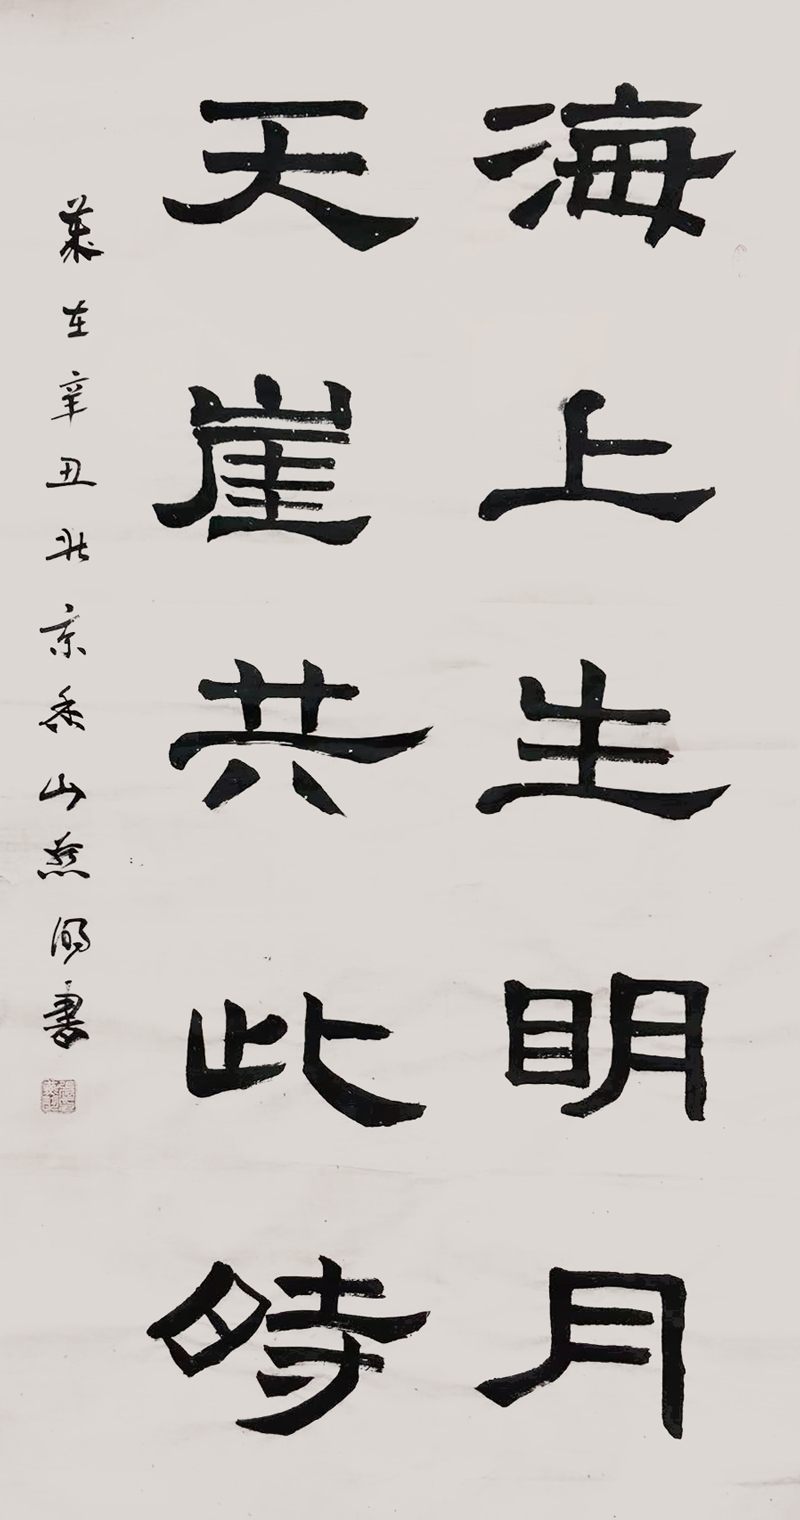 海上生明月
天崖共此時
岁在辛丑北京香山燕明書